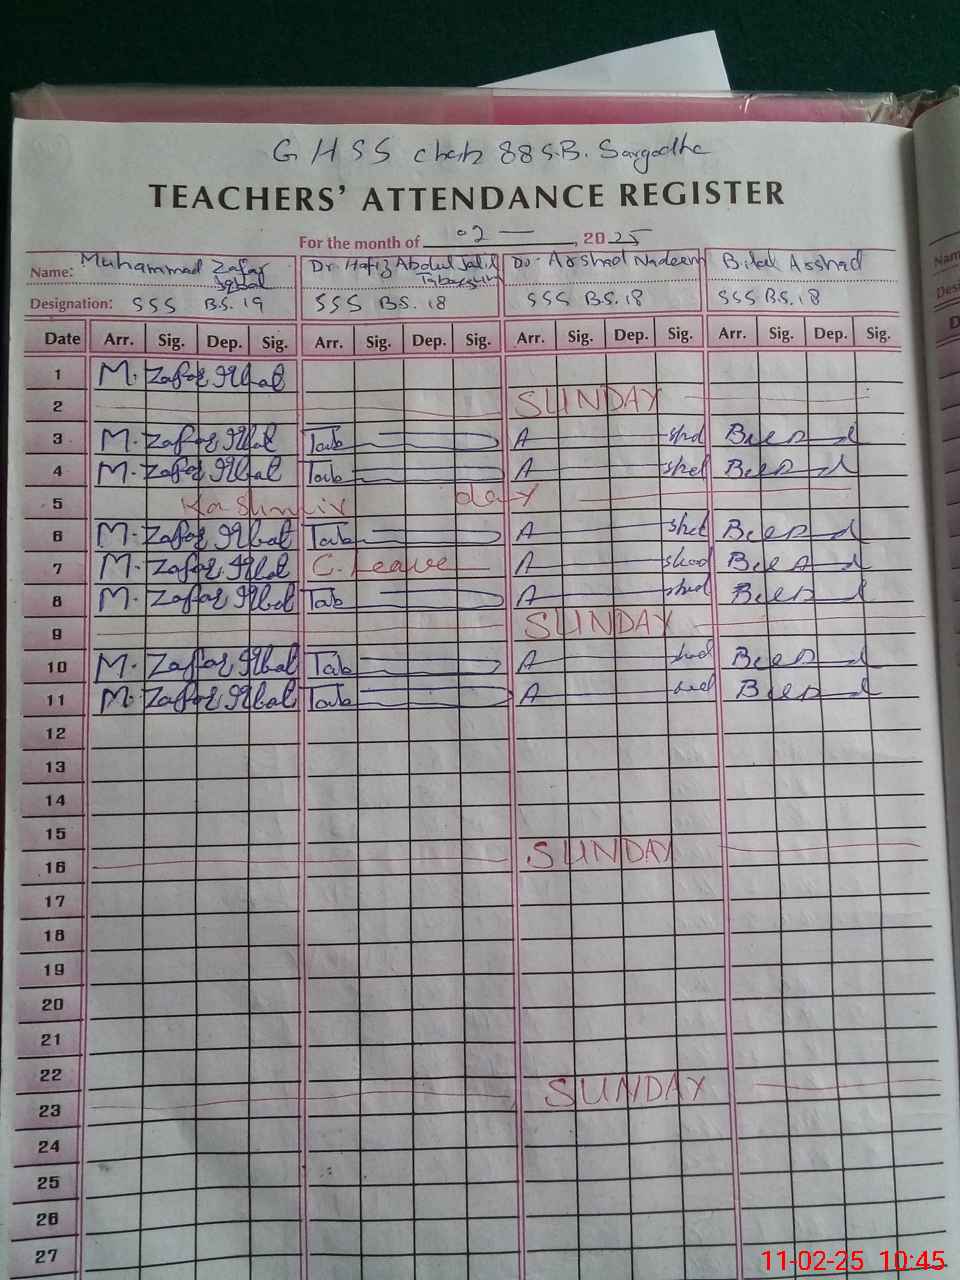 GHSS chak 88 S.B. Sargodha
TEACHERS' ATTENDANCE REGISTER
For the month of 02 — , 2025
Name: Muhammad Zafar Iqbal Dr. Hafiz Abdul Jalil Tabassum Dr. Arshad Nadeem Bilal Arshad
Designation: SSS B.S. 19 SSS B.S. 18 SSS B.S. 18 SSS B.S. 18
Date Arr. Sig. Dep. Sig. Arr. Sig. Dep. Sig. Arr. Sig. Dep. Sig. Arr. Sig. Dep. Sig.
1 M. Zafar Iqbal
2 SUNDAY
3 M. Zafar Iqbal Tab A shd
4 M. Zafar Iqbal Tab A shd
5 Kashmir day
6 M. Zafar Iqbal Tab A shd
7 M. Zafar Iqbal C. Leave A shad
8 M. Zafar Iqbal Tab A shd
9 SUNDAY
10 M. Zafar Iqbal Tab A
11 M. Zafar Iqbal Tab A
12
13
14
15
16 SUNDAY
17
18
19
20
21
22
23 SUNDAY
24
25
26
27
11-02-25 10:45